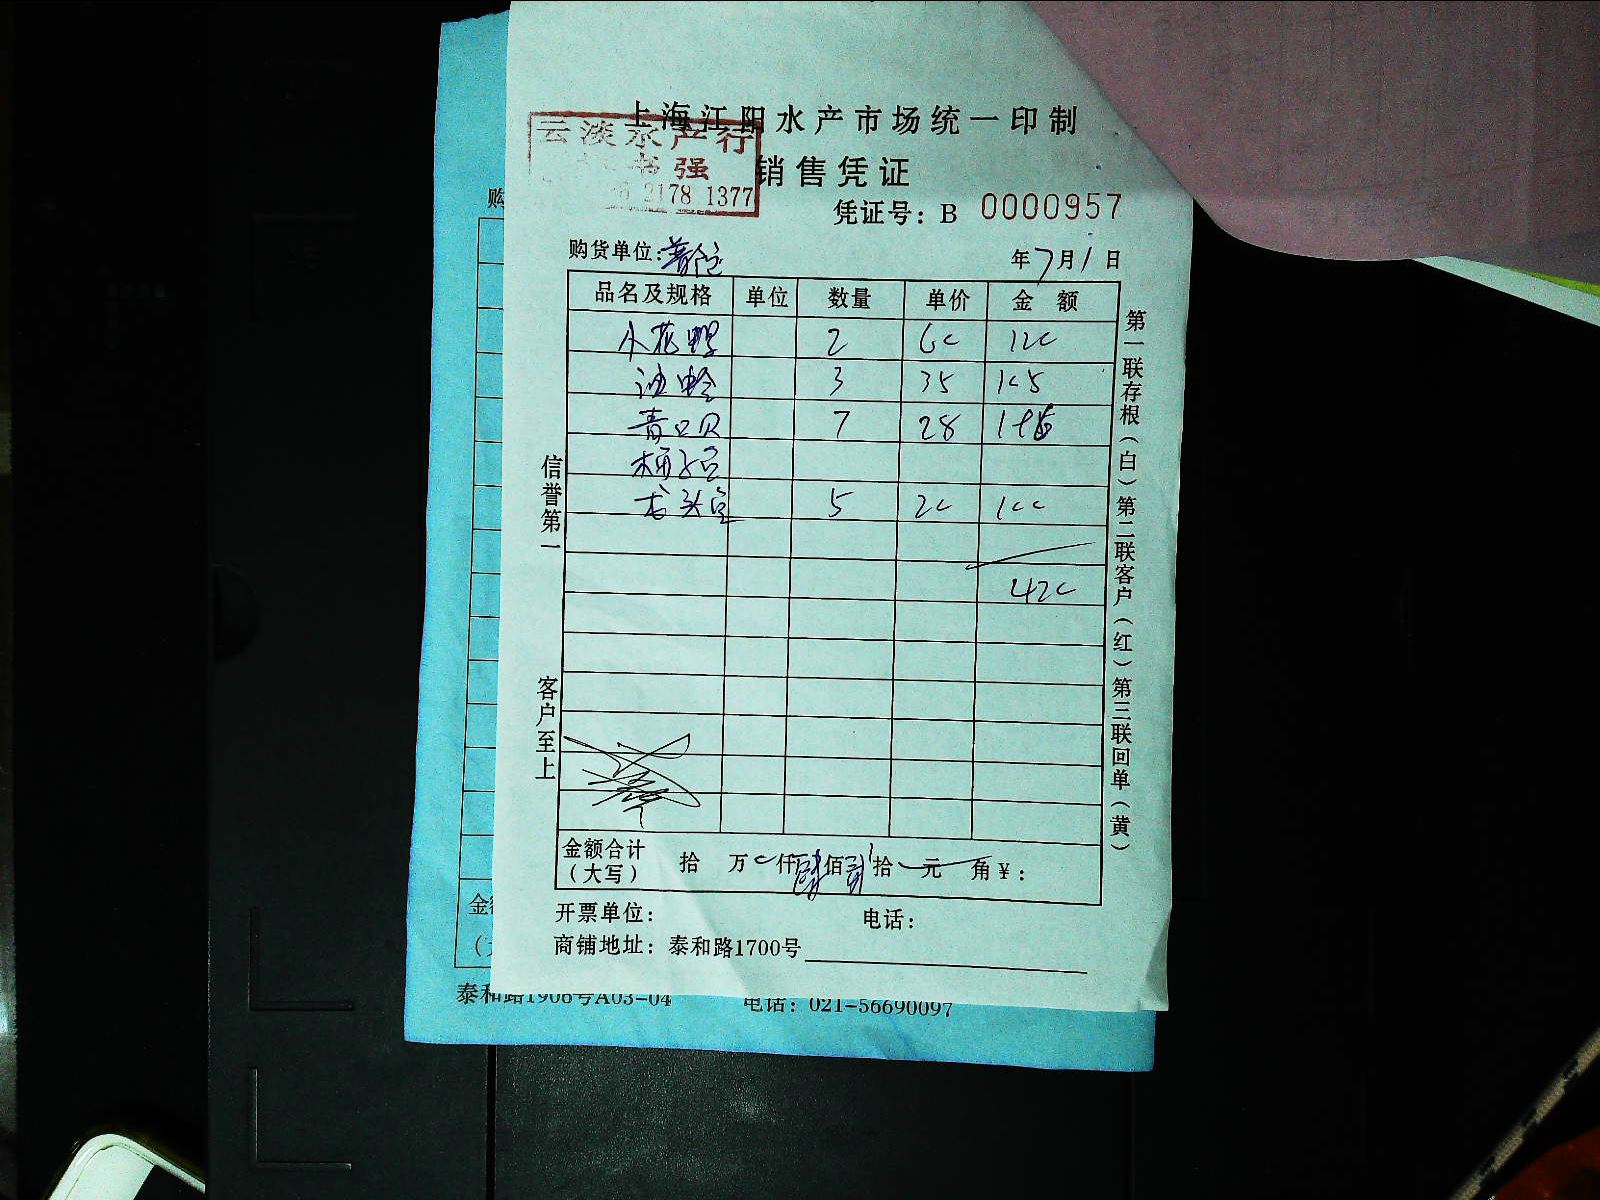 上海江阳水产市场统一印制
云淡水产行
书强
销售凭证
2178 1377
凭证号：B 0000957
购
购货单位：
年7月1日
品名及规格 单位 数量 单价 金额
小花螺 2 60 120
油蛤 3 35 105
青口贝 7 28
5 20 100
420
信誉第一
客户至上
第一联存根（白）第二联客户（红）第三联回单（黄）
金额合计（大写） 拾 万 仟 佰 拾 元 角 ￥：
开票单位： 电话：
商铺地址：泰和路1700号
泰和路1908号A03-04 电话：021-56690097